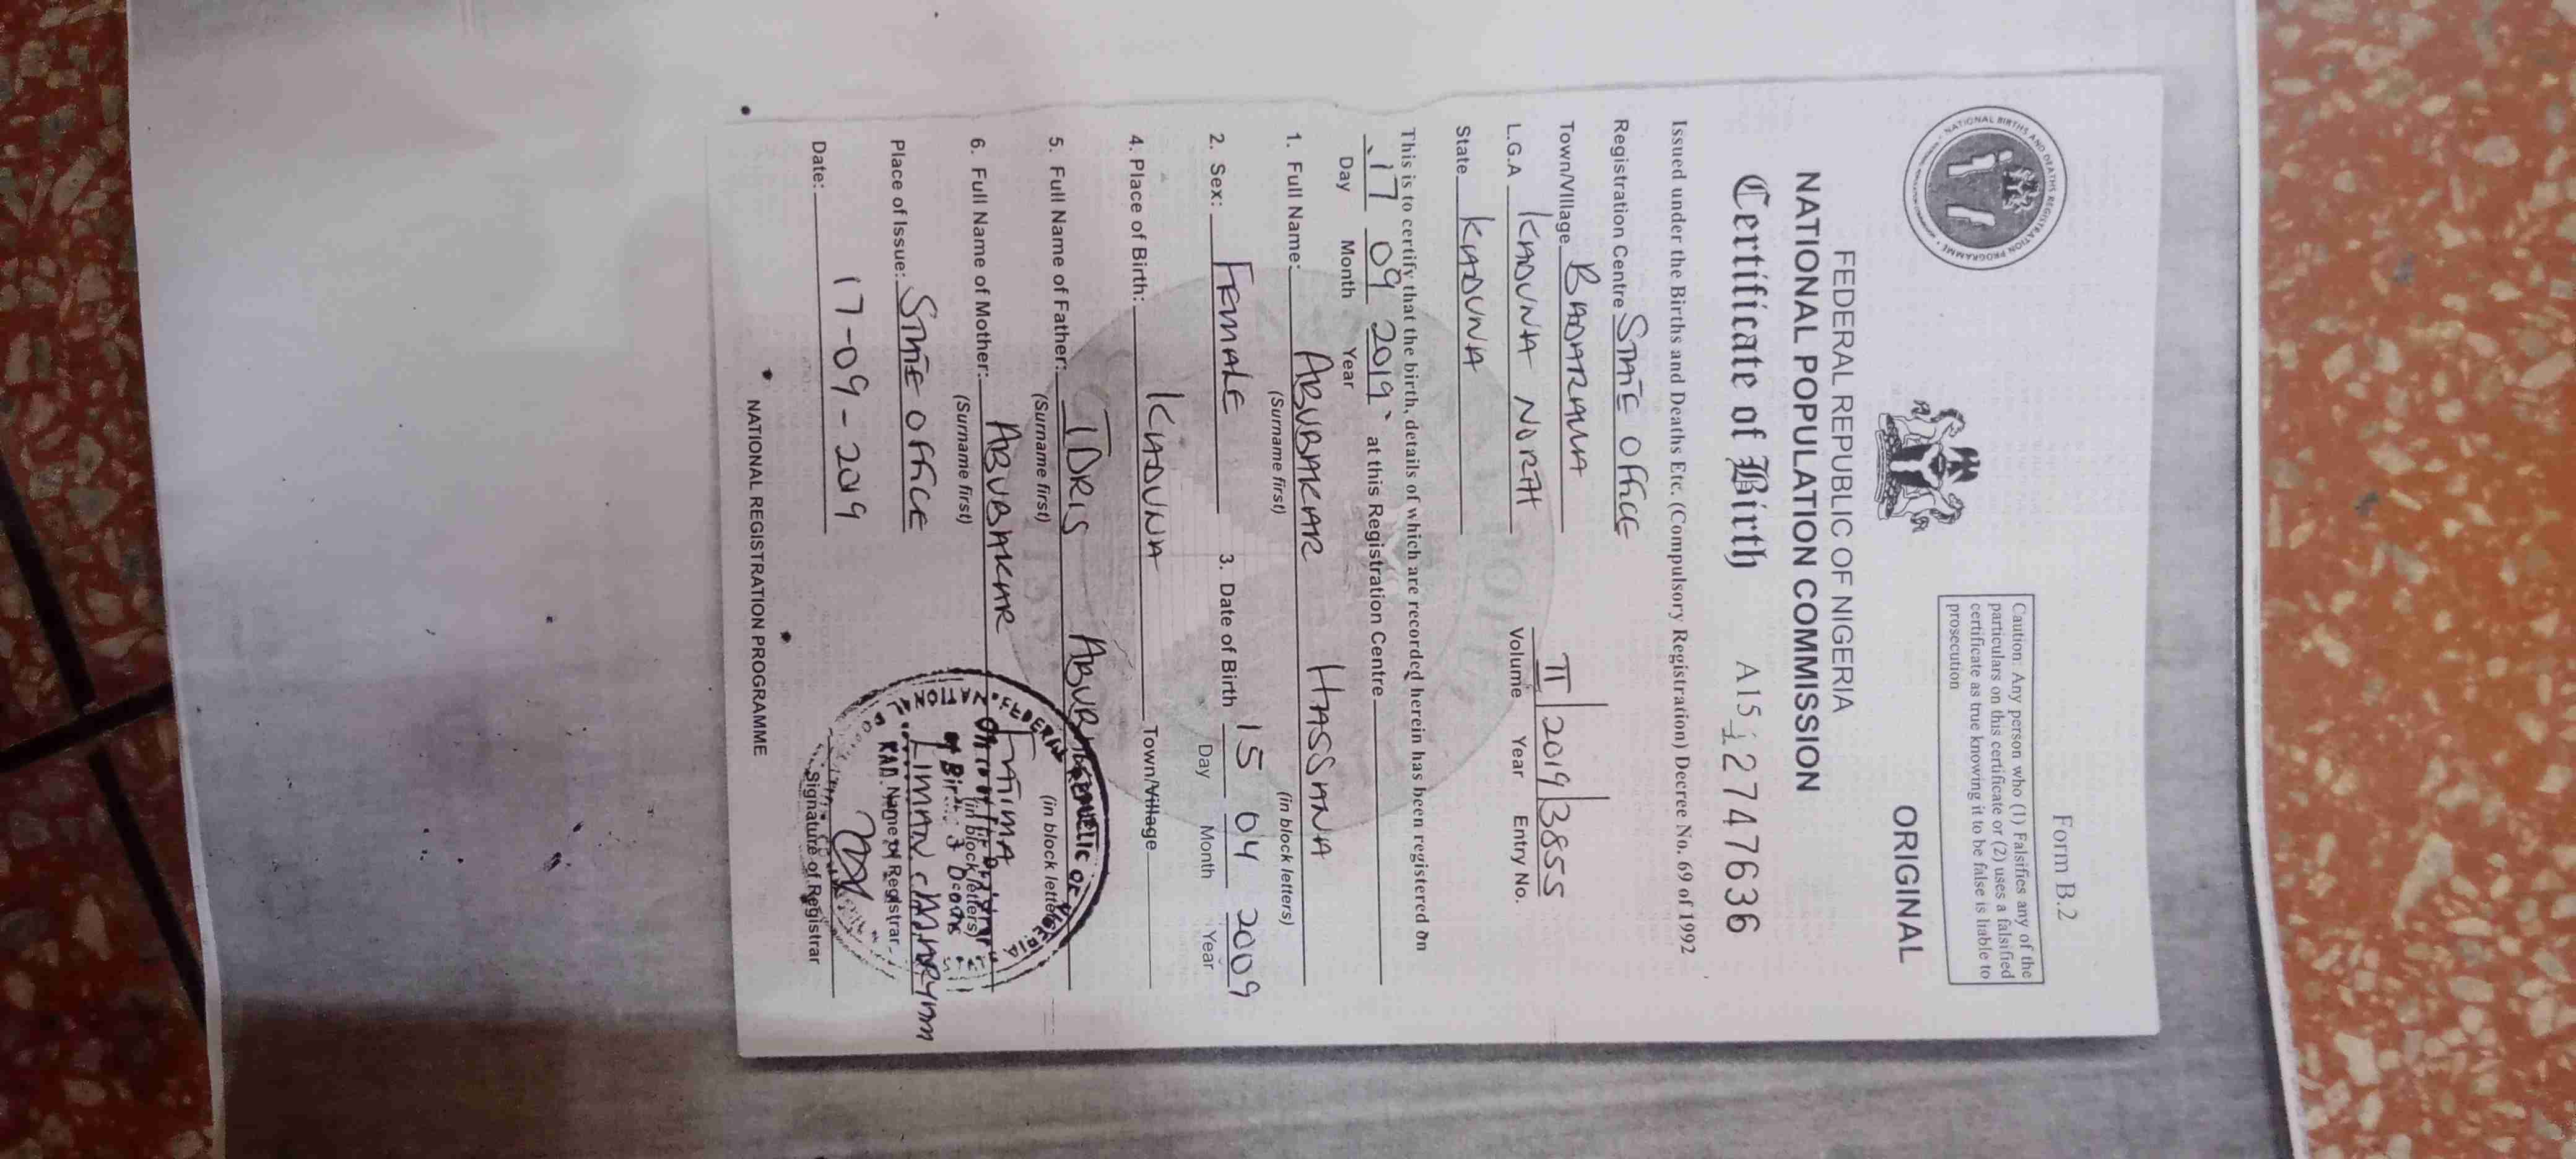 Form B.2
Caution: Any person who (1) Falsifies any of the
particulars on this certificate or (2) uses a falsified
certificate as true knowing it to be false is liable to
prosecution
NATIONAL BIRTHS AND DEATHS REGISTRATION PROGRAMME
ORIGINAL
FEDERAL REPUBLIC OF NIGERIA
NATIONAL POPULATION COMMISSION
Certificate of Birth A15 12747636
Issued under the Births and Deaths Etc. (Compulsory Registration) Decree No. 69 of 1992
Registration Centre STATE OFFICE
Town/Village BADARAWA II 2019 3855
L.G.A KADUNA NORTH Volume Year Entry No.
State KADUNA
This is to certify that the birth, details of which are recorded herein has been registered on
17 09 2019 at this Registration Centre
Day Month Year
1. Full Name: ABUBAKAR HASSANA
(Surname first) (in block letters)
2. Sex: FEMALE 3. Date of Birth 15 04 2009
Day Month Year
4. Place of Birth: KADUNA Town/Village
5. Full Name of Father: IDRIS ABUBAKAR
(Surname first) (in block letters)
6. Full Name of Mother: ABUBAKAR FATIMA
(Surname first) (in block letters)
Place of Issue: STATE OFFICE LIMAN
Name of Registrar
Date: 17-09-2019
Signature of Registrar
NATIONAL REGISTRATION PROGRAMME